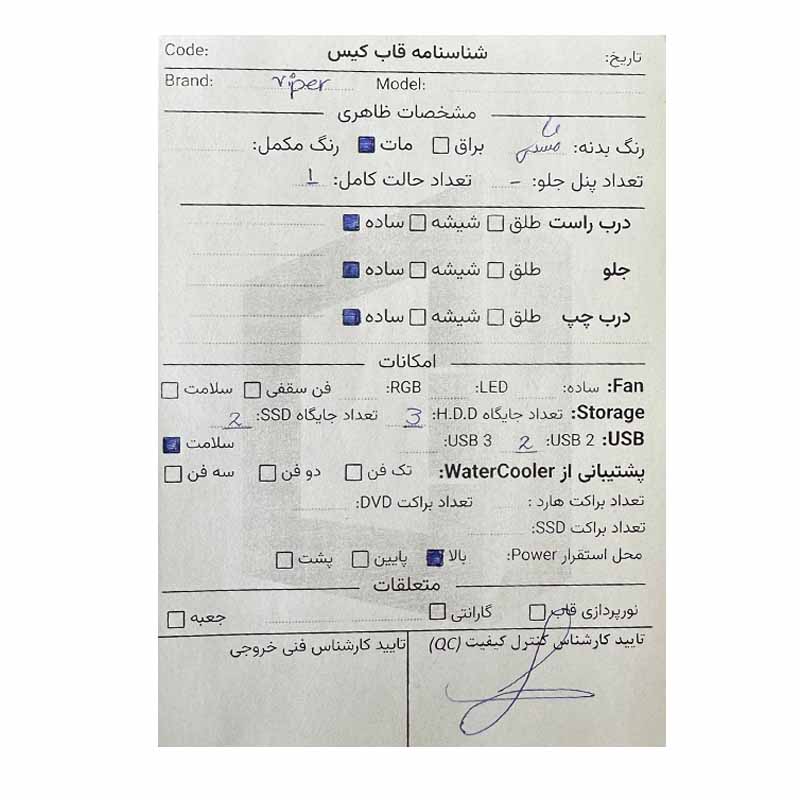 Code: شناسنامه قاب کیس تاریخ:
Brand: viper Model:
مشخصات ظاهری
رنگ بدنه: مشکی براق مات رنگ مکمل:
تعداد پنل جلو: - تعداد حالت کامل: 1
درب راست طلق شیشه ساده
جلو طلق شیشه ساده
درب چپ طلق شیشه ساده
امکانات
Fan: ساده: LED: RGB: فن سقفی سلامت
Storage: تعداد جایگاه H.D.D: 3 تعداد جایگاه SSD: 2
USB: USB 2: 2 USB 3: سلامت
پشتیبانی از WaterCooler: تک فن دو فن سه فن
تعداد براکت هارد : تعداد براکت DVD:
تعداد براکت SSD:
محل استقرار Power: بالا پایین پشت
متعلقات
نورپردازی قاب گارانتی جعبه
تایید کارشناس کنترل کیفیت (QC) تایید کارشناس فنی خروجی